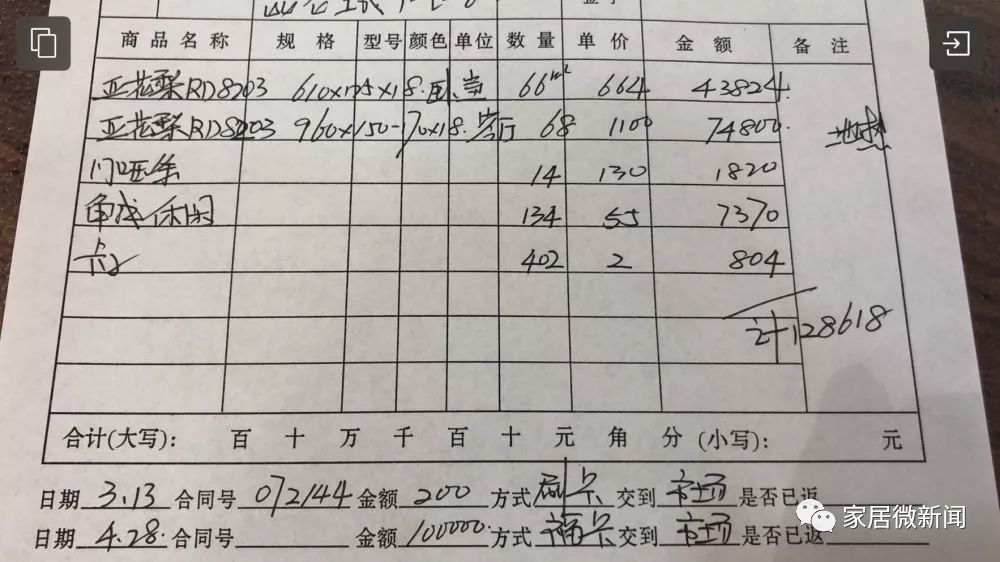 商品名称 规格 型号 颜色 单位 数量 单价 金额 备注
亚花梨RD8203 610×125×18 卧室 66m² 664 43824
亚花梨RD8203 960×150-170×18 客厅 68 1100 74800 地热
门压条 14 130 1820
休闲 134 55 7370
402 2 804
计128618
合计(大写): 百 十 万 千 百 十 元 角 分 (小写): 元
日期 3.13 合同号 072144 金额 200 方式 刷卡 交到 市场 是否已返
日期 4.28 合同号 金额 100000 方式 卡 交到 市场 是否已返
家居微新闻